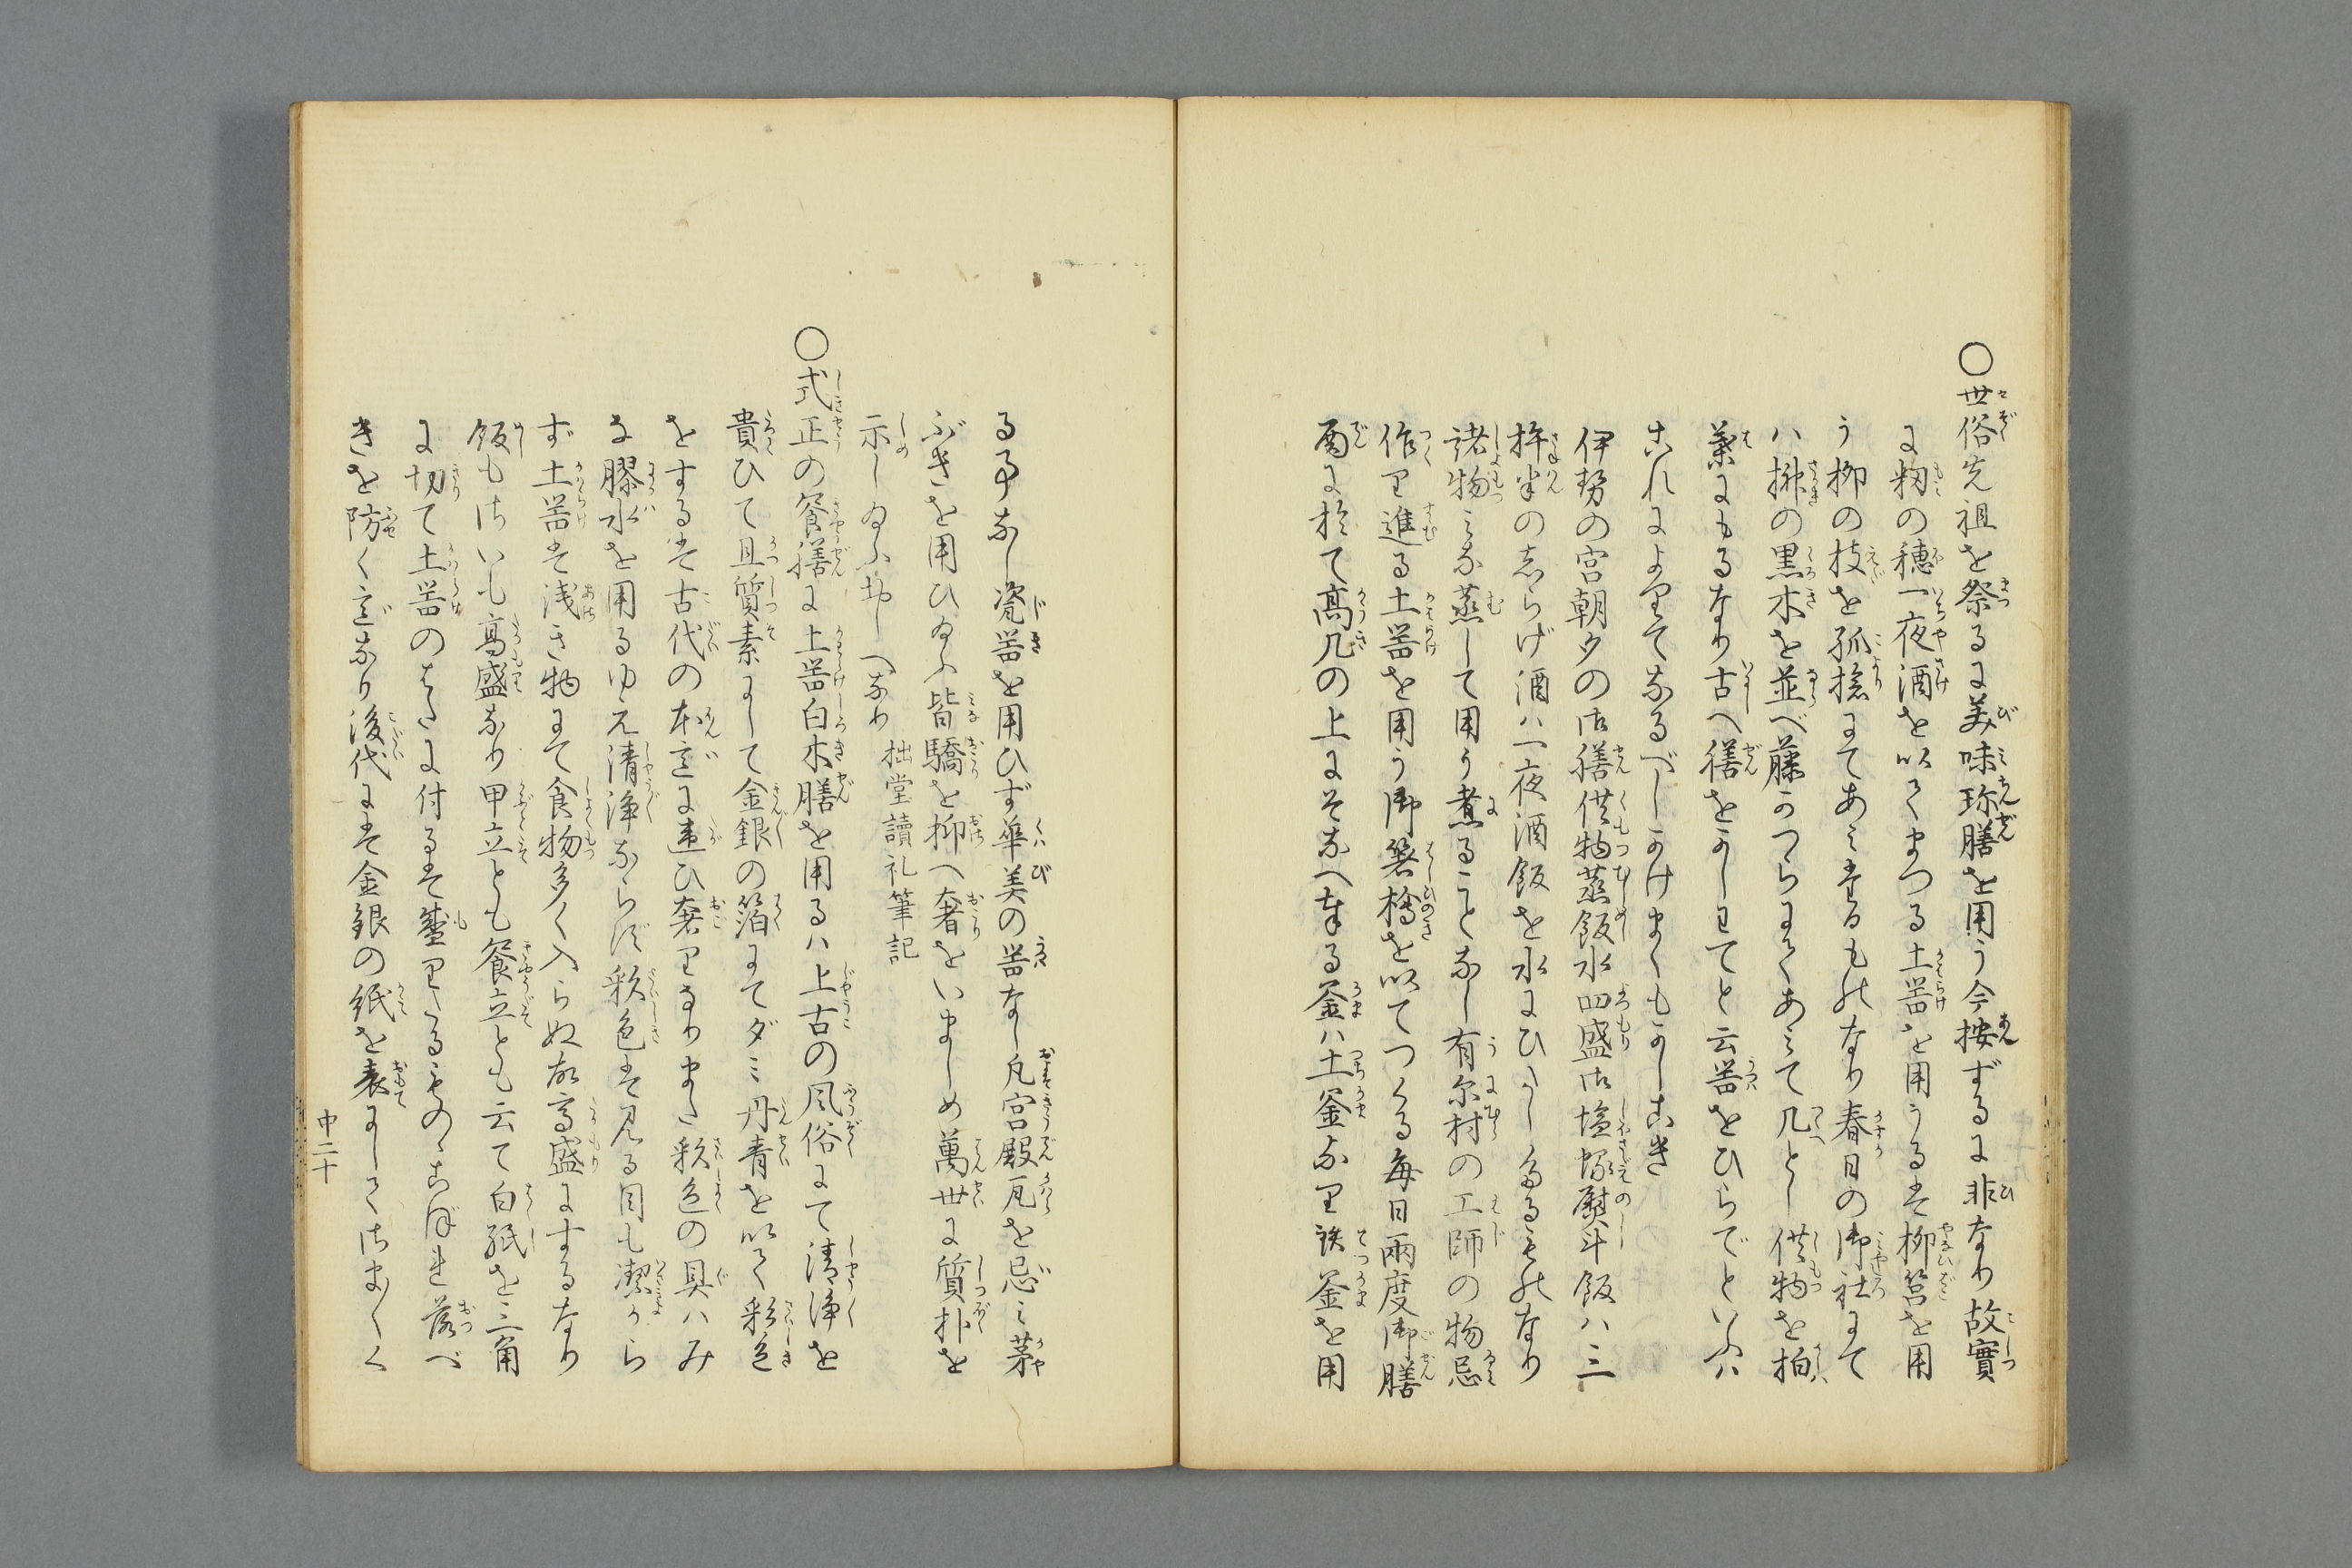 〇世俗先祖を祭るに美味珍膳を用う今按ずるに非なり故實
に籾の穂一夜酒を以てまつる土器を用うるは柳筥を用
う柳の枝を孤捻にてあみたるものなり春日の御社にて
ハ榊の黒木を並べ藤かつらにてあみて几とし供物を柏
葉にもるなり古へ膳をかしはてと云器をひらでといふハ
これによりてなるべしかけまくもかしこき
伊勢の宮朝夕の御膳供物蒸飯水四盛御塩塚熨斗飯ハ三
杵半のしらげ酒ハ一夜酒飯を水にひたしたるものなり
諸物みな蒸して用う煮ることなし有尓村の工師の物忌
作り進る土器を用う御箸檜を以てつくる毎日兩度御膳
を於て高几の上にそなへ奉る釜ハ土釜なり鉄釜を用
る事なし瓷器を用ひず華美の器なし凡宮殿瓦を忌み茅
ぶきを用ひ給ふ皆驕を抑へ奢をいましめ萬世に質朴を
示し給ふおしへなり 拙堂讀礼筆記
〇式正の饗膳に土器白木膳を用るハ上古の風俗にて清浄を
貴ひて且質素にして金銀の箔にてダミ丹青を以て彩色
をするは古代の本意に違ひ奢りなりまた彩色の具ハみ
な膠水を用るゆえ清浄ならず彩色は見る目も潔から
ず土器は浅き物にて食物多く入らぬ故高盛にするなり
飯もさいも高盛なり甲立とも饗立とも云て白紙を三角
に切て土器のはたに付るは盛りたるものゝこぼれ落べ
きを防く意なり後代には金銀の紙を表にしてさま〲く
中二十